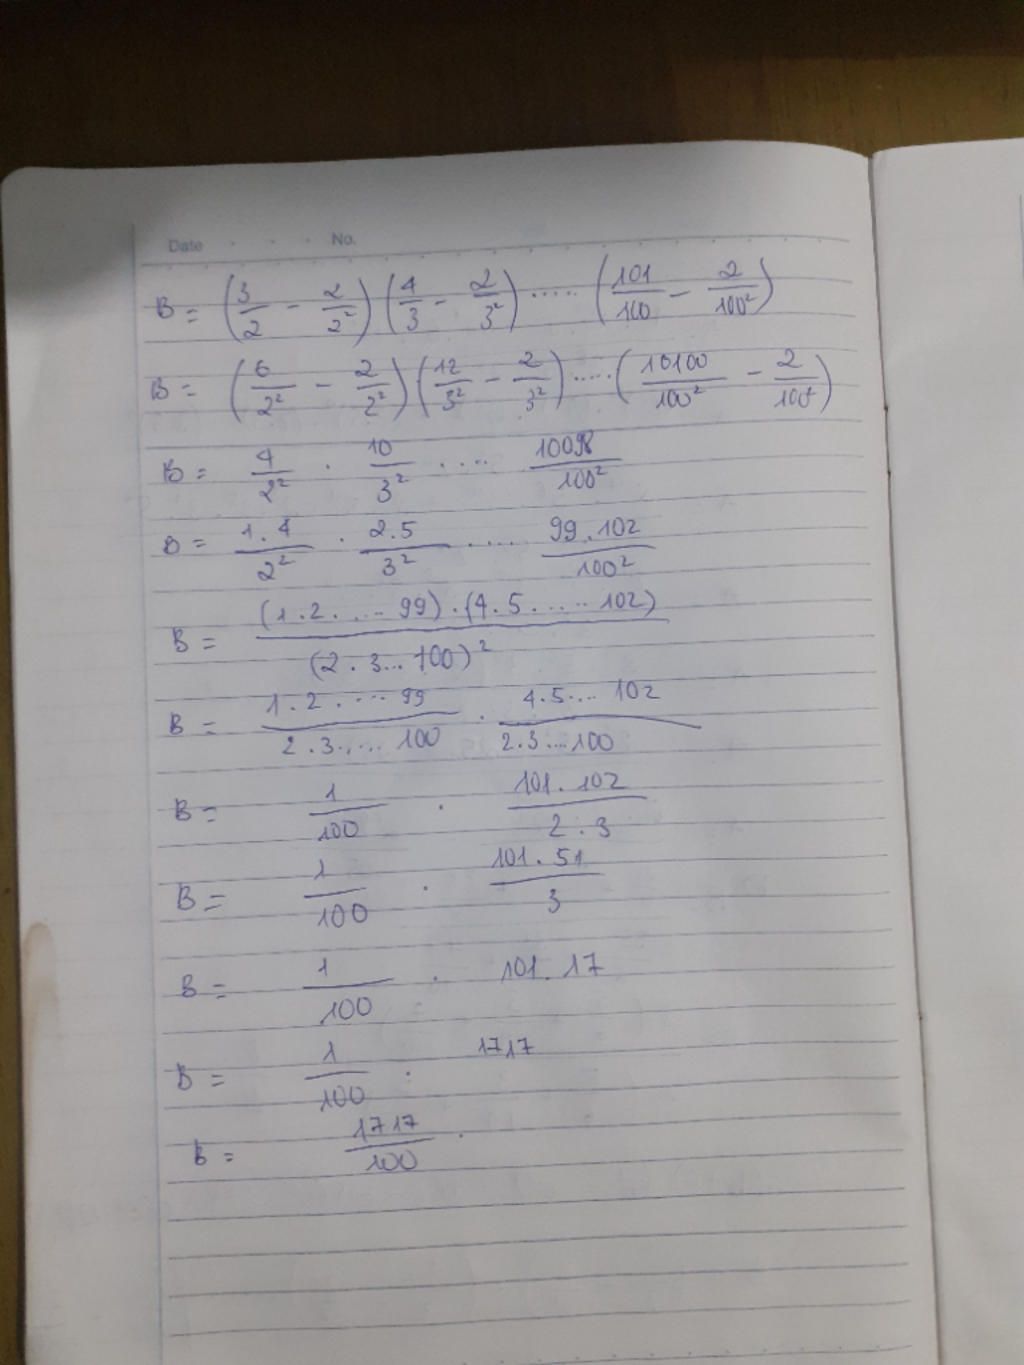 Date . . . No.
B = (3/2 - 2/2²) (4/3 - 2/3²) ..... (101/100 - 2/100²)
B = (6/2² - 2/2²) (12/3² - 2/3²) ..... (10100/100² - 2/100²)
B = 4/2² . 10/3² .... 10098/100²
B = 1.4/2² . 2.5/3² .... 99.102/100²
B = (1.2. .... 99) . (4.5. .... 102) / (2.3...100)²
B = 1.2. .... 99 / 2.3. .... 100 . 4.5. ... 102 / 2.3...100
B = 1/100 . 101.102 / 2.3
B = 1/100 . 101.51 / 3
B = 1/100 . 101.17
B = 1/100 . 1717
B = 1717/100 .